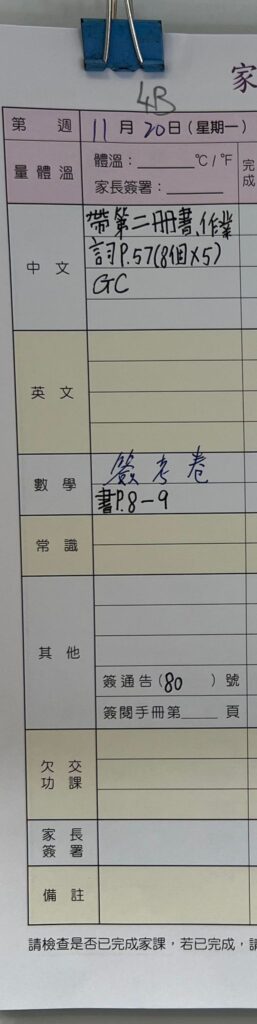 4B
家
第 週 11 月 20 日 (星期一)
量體溫 體溫：______°C / °F 完成
家長簽署：______
中文 帶第二冊書、作業
詞P.57(8個×5)
GC
英文
數學 簽考卷
書P.8-9
常識
其他
簽通告(80 ) 號
簽閱手冊第____ 頁
欠交功課
家長簽署
備註
請檢查是否已完成家課，若已完成，請